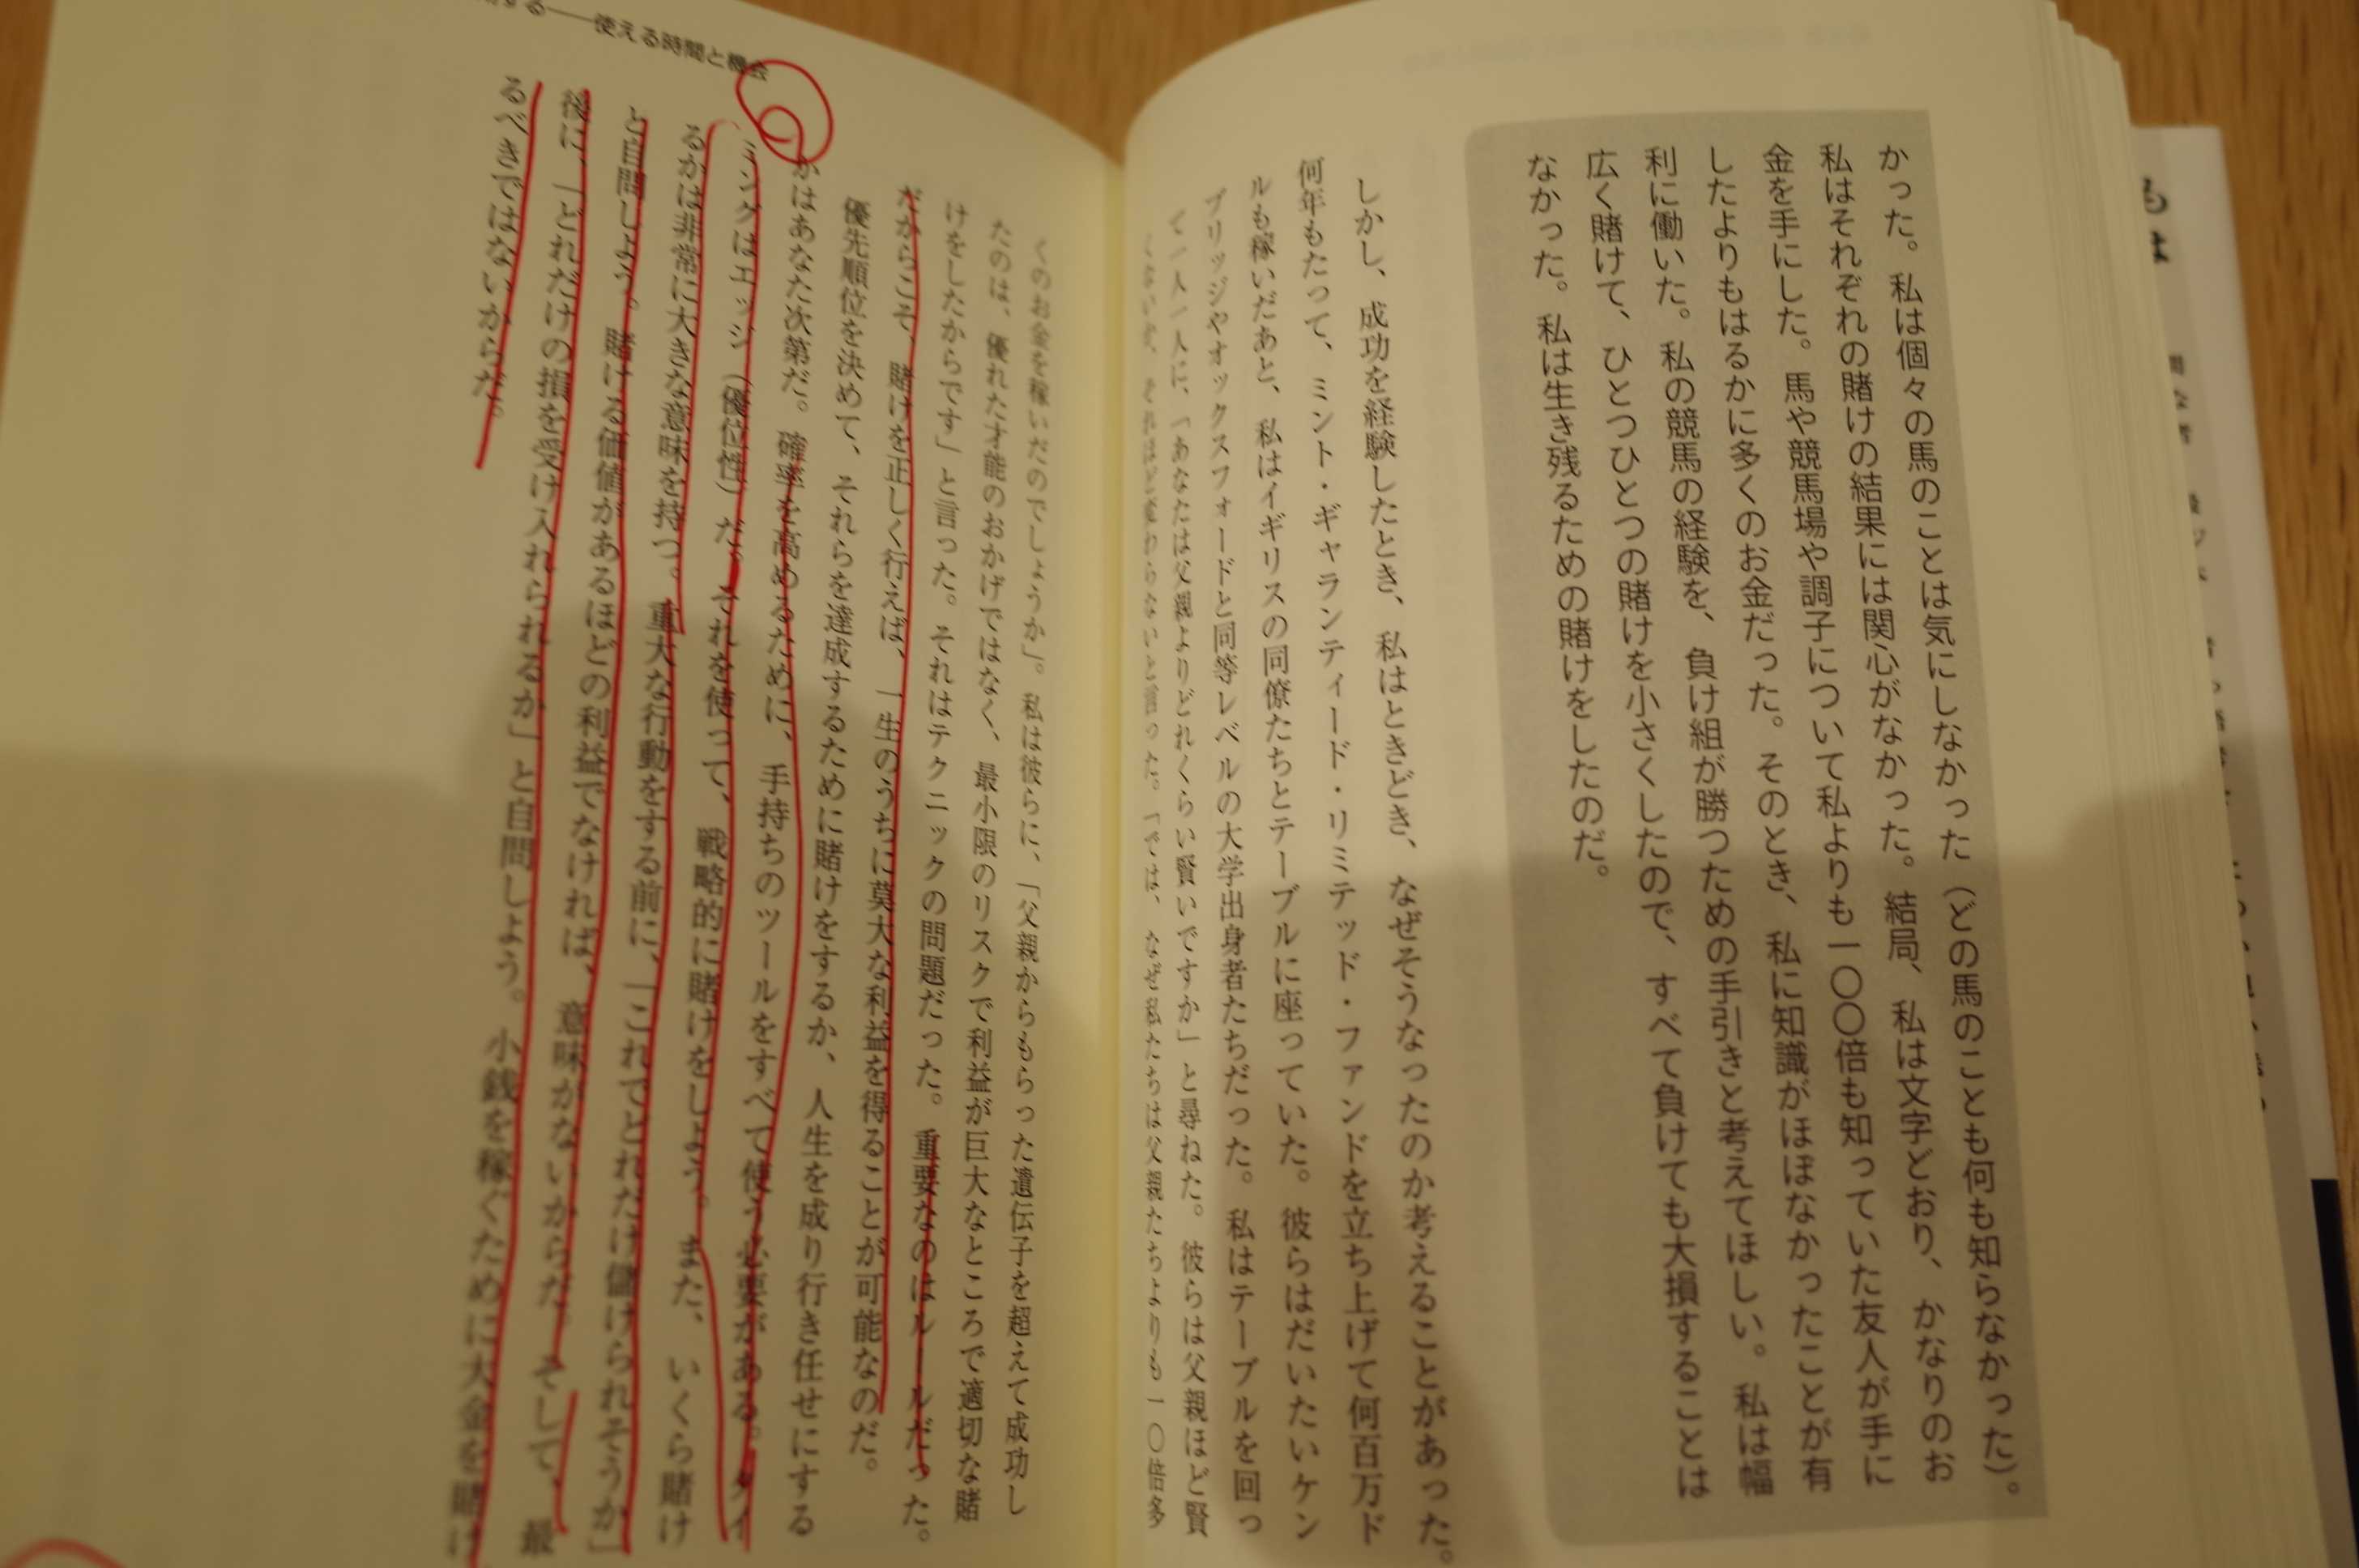 かった。私は個々の馬のことは気にしなかった（どの馬のことも何も知らなかった）。
私はそれぞれの賭けの結果には関心がなかった。結局、私は文字どおり、かなりのお
金を手にした。馬や競馬場や調子について私よりも一〇〇倍も知っていた友人が手に
したよりもはるかに多くのお金だった。そのとき、私に知識がほぼなかったことが有
利に働いた。私の競馬の経験を、負け組が勝つための手引きと考えてほしい。私は幅
広く賭けて、ひとつひとつの賭けを小さくしたので、すべて負けても大損することは
なかった。私は生き残るための賭けをしたのだ。
しかし、成功を経験したとき、私はときどき、なぜそうなったのか考えることがあった。
何年もたって、ミント・ギャランティード・リミテッド・ファンドを立ち上げて何百万ド
ルも稼いだあと、私はイギリスの同僚たちとテーブルに座っていた。彼らはだいたいケン
ブリッジやオックスフォードと同等レベルの大学出身者たちだった。私はテーブルを回っ
て一人一人に、「あなたは父親よりどれくらい賢いですか」と尋ねた。彼らは父親ほど賢
くないか、それほど変わらないと言った。「では、なぜ私たちは父親たちよりも一〇倍多
くのお金を稼いだのでしょうか」。私は彼らに、「父親からもらった遺伝子を超えて成功し
たのは、優れた才能のおかげではなく、最小限のリスクで利益が巨大なところで適切な賭
けをしたからです」と言った。それはテクニックの問題だった。重要なのはルールだった。
だからこそ、賭けを正しく行えば、一生のうちに莫大な利益を得ることが可能なのだ。
優先順位を決めて、それらを達成するために賭けをするか、人生を成り行き任せにする
かはあなた次第だ。確率を高めるために、手持ちのツールをすべて使う必要がある。タイ
ミングはエッジ（優位性）だ。それを使って、戦略的に賭けをしよう。また、いくら賭け
るかは非常に大きな意味を持つ。重大な行動をする前に、「これでどれだけ儲けられそうか」
と自問しよう。賭ける価値があるほどの利益でなければ、意味がないからだ。そして、最
後に、「どれだけの損を受け入れられるか」と自問しよう。小銭を稼ぐために大金を賭け
るべきではないからだ。
する――使える時間と機会